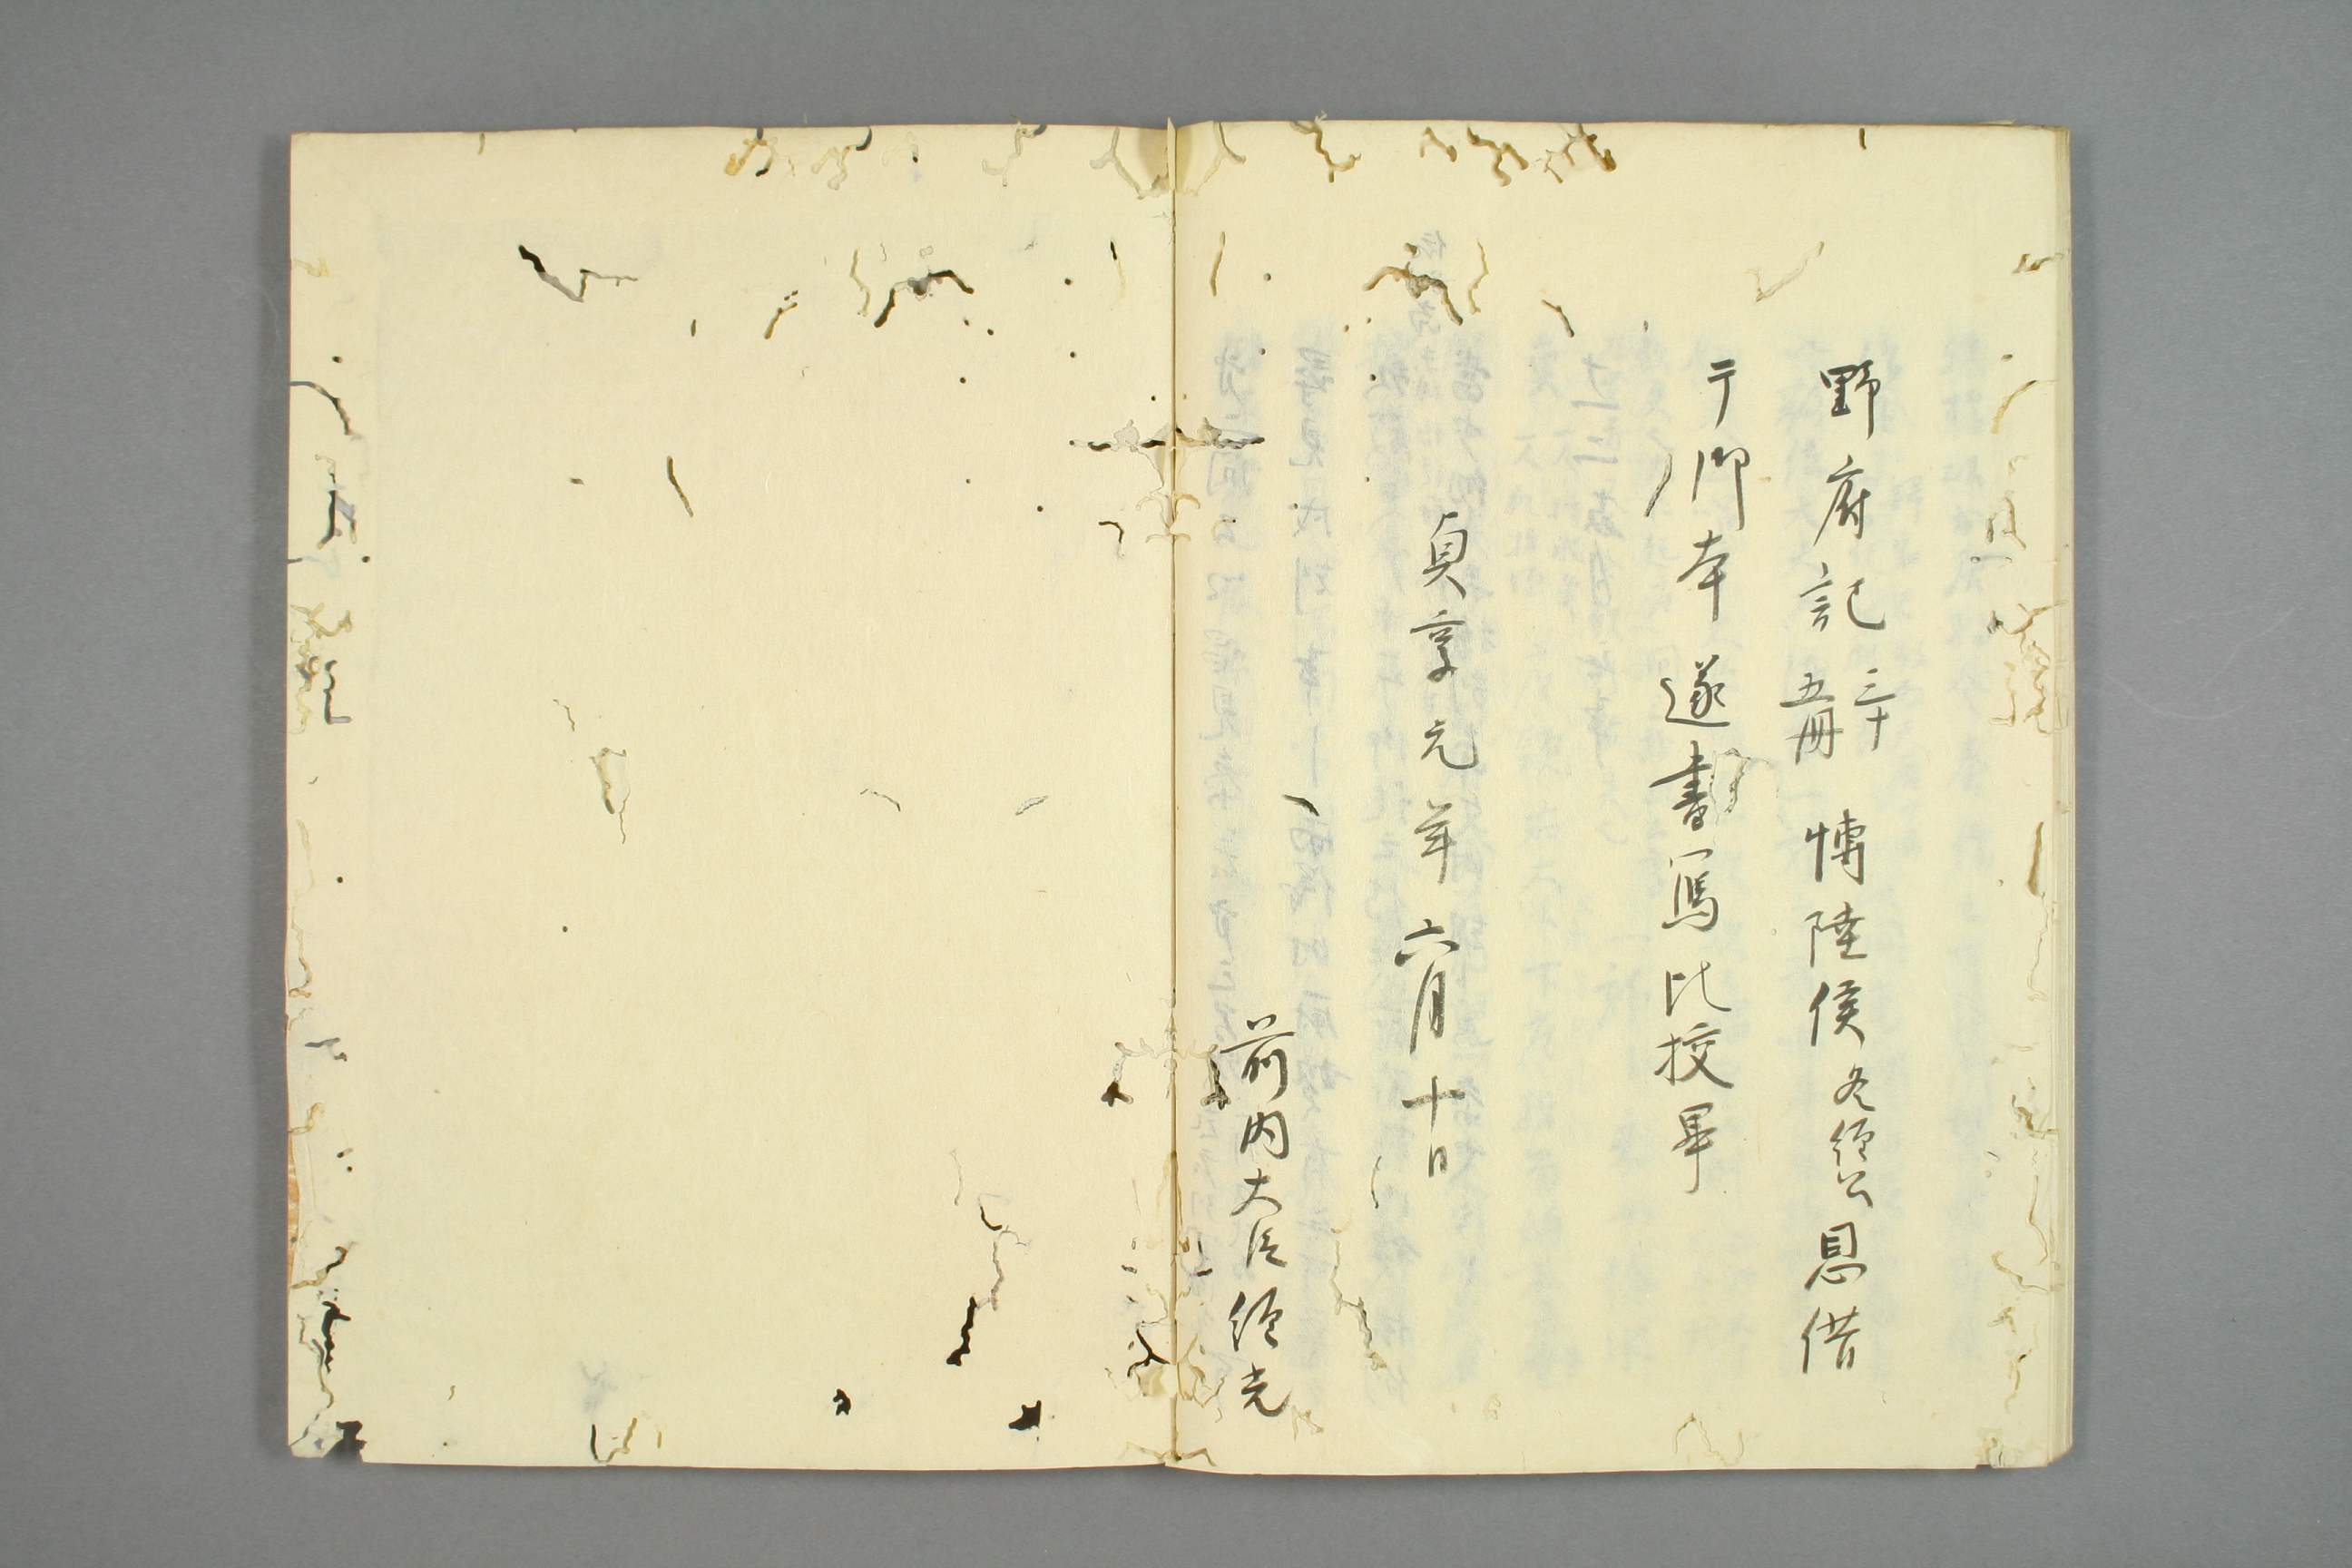 野府記三十五冊博陸侯冬經公恩借
于御本遂書寫比挍畢
貞享元年六月十日
前内大臣經光